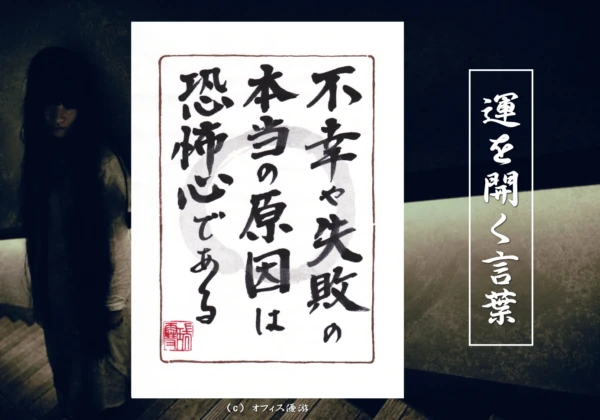 不幸や失敗の
本当の原因は
恐怖心である
運を開く言葉
(c) オフィス優游